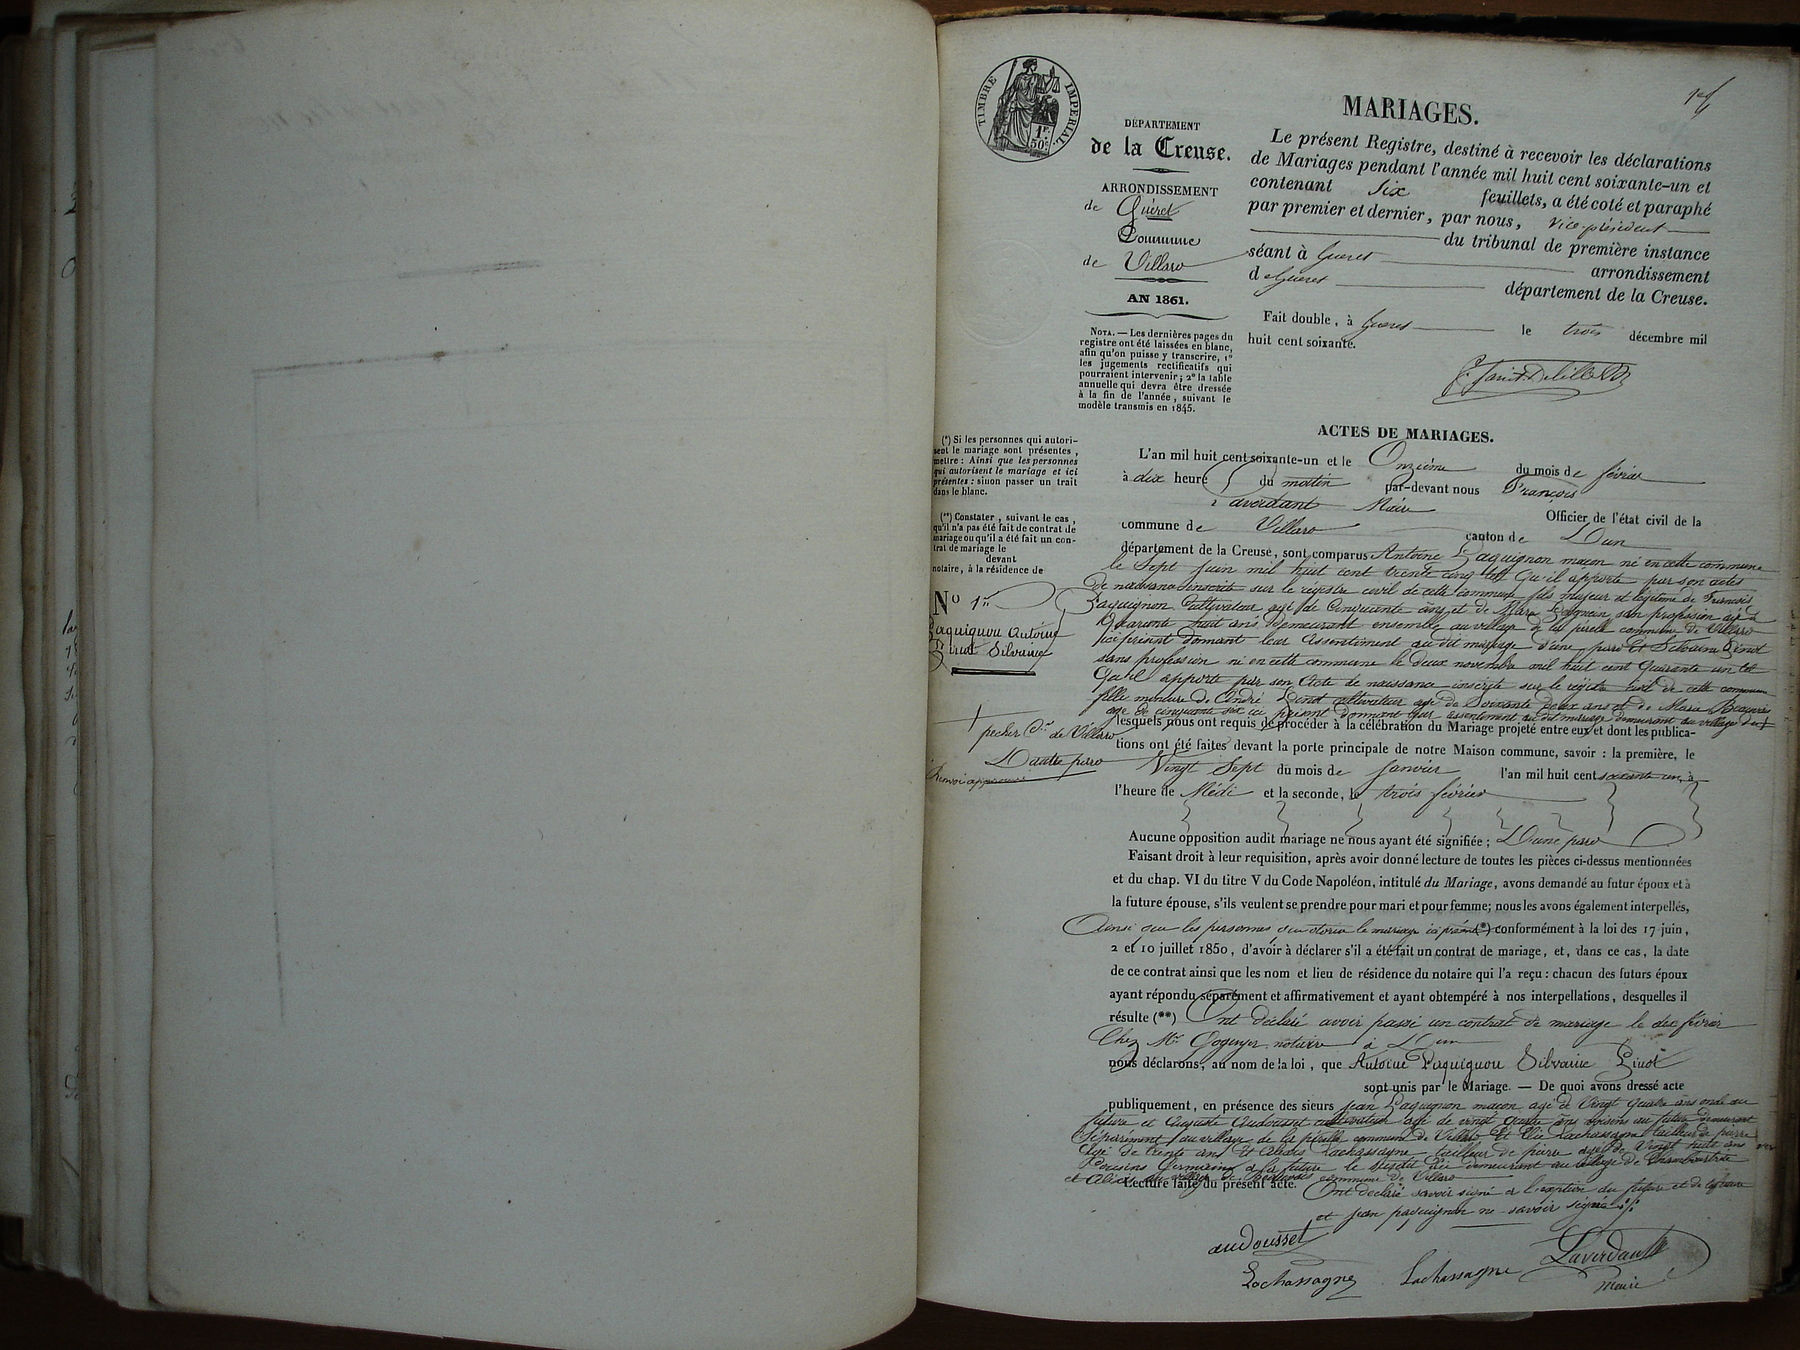 TIMBRE IMPERIAL
1F
50C
DÉPARTEMENT
de la Creuse.
ARRONDISSEMENT
de Guéret
Commune
de Villard
AN 1861.
NOTA. — Les dernières pages du
registre ont été laissées en blanc,
afin qu'on puisse y transcrire, 1º
les jugements rectificatifs qui
pourraient intervenir; 2º la table
annuelle qui devra être dressée
à la fin de l'année, suivant le
modèle transmis en 1845.
MARIAGES.
Le présent Registre, destiné à recevoir les déclarations
de Mariages pendant l'année mil huit cent soixante-un et
contenant Six feuillets, a été coté et paraphé
par premier et dernier, par nous, vice-président
du tribunal de première instance
séant à Gueret arrondissement
de Gueret département de la Creuse.
Fait double, à Gueret le trois décembre mil
huit cent soixante.
(*) Si les personnes qui autori-
sent le mariage sont présentes,
mettre : Ainsi que les personnes
qui autorisent le mariage et ici
présentes : sinon passer un trait
dans le blanc.
(**) Constater, suivant le cas,
qu'il n'a pas été fait de contrat de
mariage ou qu'il a été fait un con-
trat de mariage le
devant
notaire, à la résidence de
Nº 1er
Paquignon Antoine
Et Pinot Silvaine
ACTES DE MARIAGES.
L'an mil huit cent soixante-un et le Onzième du mois de février
à dix heure du mattin par-devant nous François
Laverdant Maire Officier de l'état civil de la
commune de Villard canton de Dun
département de la Creuse, sont comparus Antoine Paquignon macon né en cette commune
le Sept juin mil huit cent trente cinq tel Qu'il apporte par son actes
de naissance inscrite sur le régistre civil de cette commune fils majeur et légitime de Francois
Paquignon Cultivateur agé de Cinquante ans et de Mara san profession agé de
Quarante huit ans Demeurant ensemble au village de la commune de Villard
ici présent donnant leur assentiment au dit mariage d'une parre Et Silvaine Pinot
sans profession né en cette commune le deux novembre mil huit cent Quarante un tel
Qu'il apporte par son Acte de naissance inscrite sur le régistre civil de cette commune
fille mineure de André Pinot cultivateur agé de Soixante deux ans et de Marie
age de cinquante six ici présent donnant leur assentiment au dit mariage demeurant au village du
pecher Cne de Villard
D'autre parre
Renvoi approuvé
lesquels nous ont requis de procéder à la célébration du Mariage projeté entre eux et dont les publica-
tions ont été faites devant la porte principale de notre Maison commune, savoir : la première, le
Vingt Sept du mois de Janvier l'an mil huit cent soixante un, à
l'heure de Médi et la seconde, le trois février
Aucune opposition audit mariage ne nous ayant été signifiée; D'une parre
Faisant droit à leur requisition, après avoir donné lecture de toutes les pièces ci-dessus mentionnées
et du chap. VI du titre V du Code Napoléon, intitulé du Mariage, avons demandé au futur époux et à
la future épouse, s'ils veulent se prendre pour mari et pour femme; nous les avons également interpellés,
Ainsi que les personnes le mariage ici (*) conformément à la loi des 17 juin,
2 et 10 juillet 1850, d'avoir à déclarer s'il a été fait un contrat de mariage, et, dans ce cas, la date
de ce contrat ainsi que les nom et lieu de résidence du notaire qui l'a reçu : chacun des futurs époux
ayant répondu séparément et affirmativement et ayant obtempéré à nos interpellations, desquelles il
résulte (**) Ont déclaré avoir passé un contrat de mariage le dix février
Chez Mr notaire à Dun
nous déclarons, au nom de la loi, que Antoine Paquignou Silvaine Pinot
sont unis par le Mariage. — De quoi avons dressé acte
publiquement, en présence des sieurs Jean Paquignon macon agé de Vingt Quatre ans oncle au
future et Auguste Audousset cultivateur agé de vingt quatre ans voisins au futur demeurant
Séparément au village de la commune de Villard Et Elie Lachassagne tailleur de pierre
Agé de trente ans Et Alexis Lachassagne tailleur de pierre agé de Vingt huit ans
Cousins Germains a la future le demeurant au village de
et Alexis au village de commune de Villard
Lecture faite du présent acte. Ont déclaré savoir signé a l'exeption du future et de
et jean paquignon ne savoir signé
audousset
Lachassagne Lachassagne Laverdant
maire